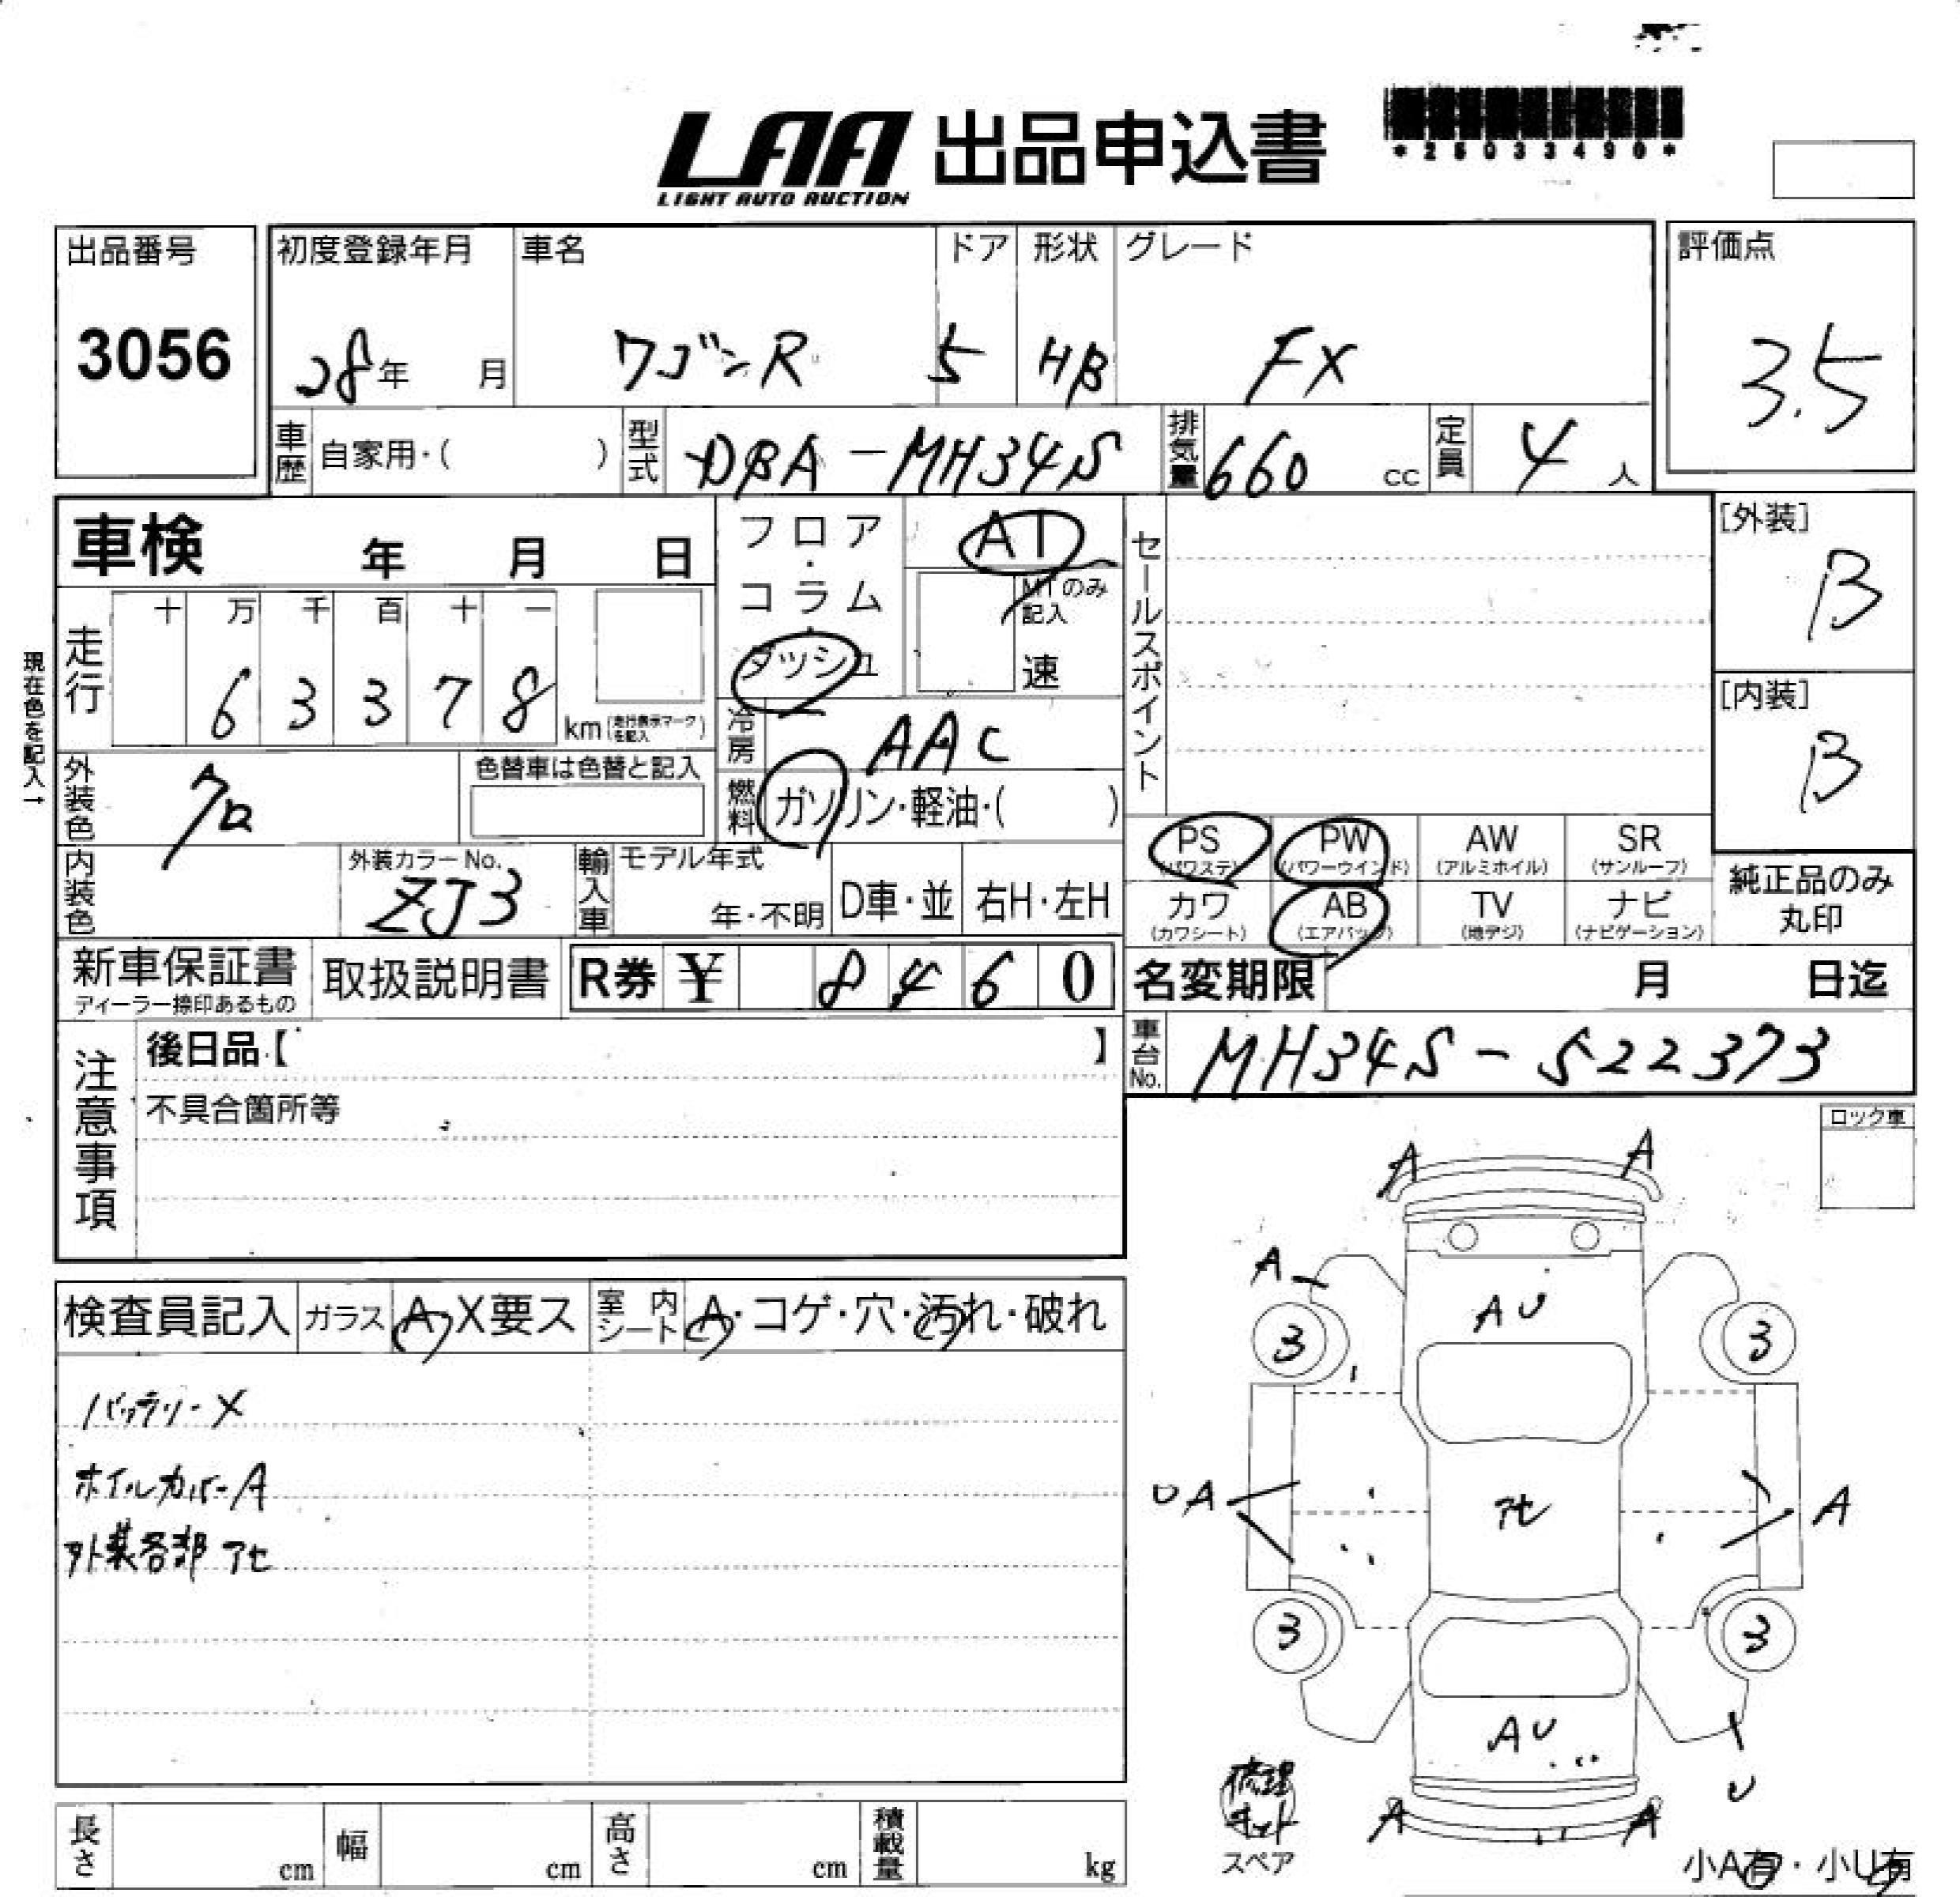 LAA 出品申込書
LIGHT AUTO AUCTION
*25033490*
出品番号
3056
初度登録年月
28年 月
車名
ワゴンR
ドア
5
形状
HB
グレード
FX
評価点
3.5
車歴 自家用・( )
型式 DBA-MH34S
排気量 660 cc
定員 4 人
車検 年 月 日
フロア・コラム・ダッシュ
AT
MTのみ記入
速
セールスポイント
[外装]
B
[内装]
B
現在色を記入→
走行
十 万 千 百 十 一
6 3 3 7 8
km (走行表示マークを記入)
冷房 AAC
燃料 ガソリン・軽油・( )
外装色 クロ
色替車は色替と記入
内装色
外装カラーNo.
ZJ3
輸入車 モデル年式
年・不明
D車・並
右H・左H
PS (パワステ)
PW (パワーウインド)
AW (アルミホイル)
SR (サンルーフ)
カワ (カワシート)
AB (エアバッグ)
TV (地デジ)
ナビ (ナビゲーション)
純正品のみ
丸印
新車保証書
ディーラー捺印あるもの
取扱説明書
R券 ¥ 8 4 6 0
名変期限 月 日迄
車台No. MH34S-522373
注意事項
後日品【 】
不具合箇所等
ロック車
検査員記入
ガラス A・X要ス
室内シート A・コゲ・穴・汚れ・破れ
バッテリーX
ホイルカバーA
外装各部アセ
A A
A
AU
3 3
UA
アセ
A
3 3
AU
U
A A
修理
キット
スペア
小A有・小U有
長さ cm
幅 cm
高さ cm
積載量 kg